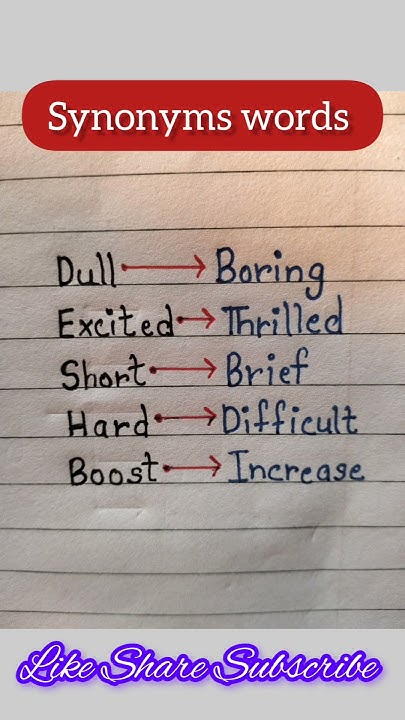 Synonyms words
Dull → Boring
Excited → Thrilled
Short → Brief
Hard → Difficult
Boost → Increase
Like Share Subscribe